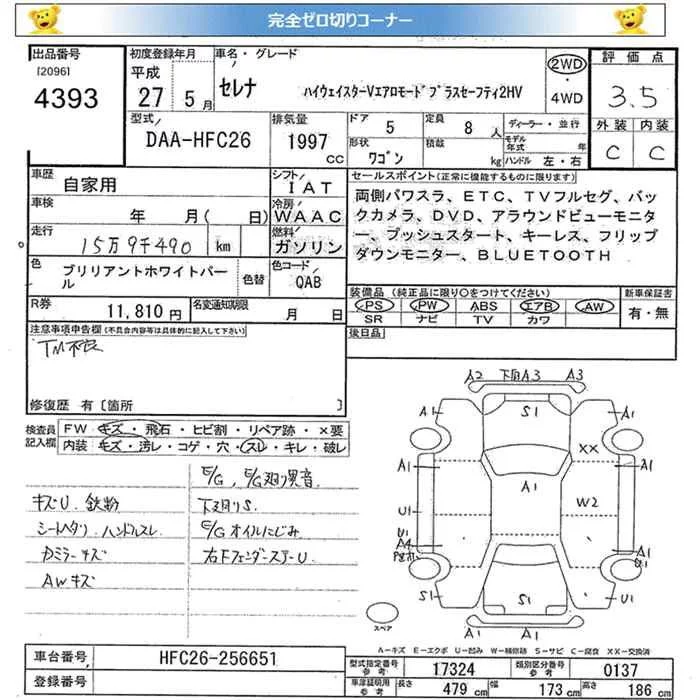 完全ゼロ切りコーナー
出品番号
[2096]
4393
初度登録年月
平成
27 5月
車名・グレード
セレナ ハイウェイスターVエアロモードプラスセーフティ2HV
2WD
・
4WD
評価点
3.5
外装 内装
C C
型式
DAA-HFC26
排気量
1997
CC
ドア 5
定員 8 人
ディーラー・並行
形状 ワゴン
積載 kg
モデル年式 年
ハンドル 左・右
車歴 自家用
シフト IAT
車検 年 月( 日)
冷房 WAAC
走行 15万9千490 km
燃料 ガソリン
色 ブリリアントホワイトパール
色替
色コード QAB
R券 11,810円
名変通知期限 月 日
セールスポイント(正常に機能するものに限ります)
両側パワスラ、ETC、TVフルセグ、バックカメラ、DVD、アラウンドビューモニター、プッシュスタート、キーレス、フリップダウンモニター、BLUETOOTH
装備品(純正品に限り○をつけてください)
PS PW ABS エアB AW
SR ナビ TV カワ
新車保証書
有・無
後日品
注意事項申告欄(不具合内容等は具体的に記入して下さい)
TM不良
修復歴 有〔箇所 〕
検査員記入欄
FW キズ・飛石・ヒビ割・リペア跡・×要
内装 キズ・汚レ・コゲ・穴・スレ・キレ・破レ
E/G、E/G廻り異音
キズU. 鉄粉
下廻りS.
シートヘタリ ハンドルスレ
E/Gオイルにじみ
Dミラーキズ
右FフェンダーステーU
AWキズ
A2 下回A3 A3
A1 S1 A1
XX
A1 A1 A1
U1 W2
U1
A4
A1 U1
S1 S1 U1
A1 A1
スペア
A-キズ E-エクボ U-凹み W-補修跡 S-サビ C-腐食 XX-交換済
車台番号 HFC26-256651
登録番号
型式指定番号 参考 17324
類別区分番号 参考 0137
車庫証明用 参考 長さ 479 cm 幅 173 cm 高さ 186 cm